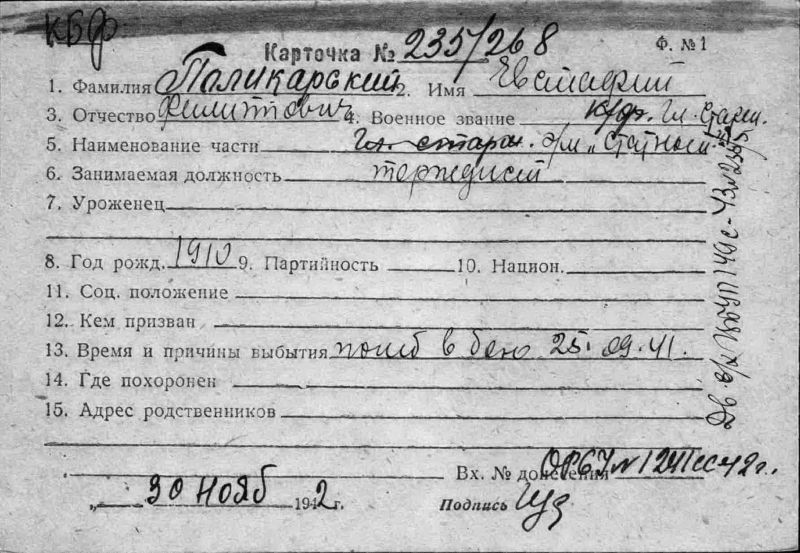 КБФ
Карточка № 235/268 Ф. № 1
1. Фамилия Поликарский 2. Имя Евстафий
3. Отчество Филиппович 4. Военное звание к/ф. Гл. Старш.
5. Наименование части Гл. старш. э/м „Статный"
6. Занимаемая должность торпедист
7. Уроженец
8. Год рожд. 1910 9. Партийность 10. Национ.
11. Соц. положение
12. Кем призван
13. Время и причины выбытия погиб в бою 25.09.41.
14. Где похоронен
15. Адрес родственников
Вх. № донесения ОРБУ № 1241сс-42г.
„ 30 Нояб 1942 г. Подпись Гуз